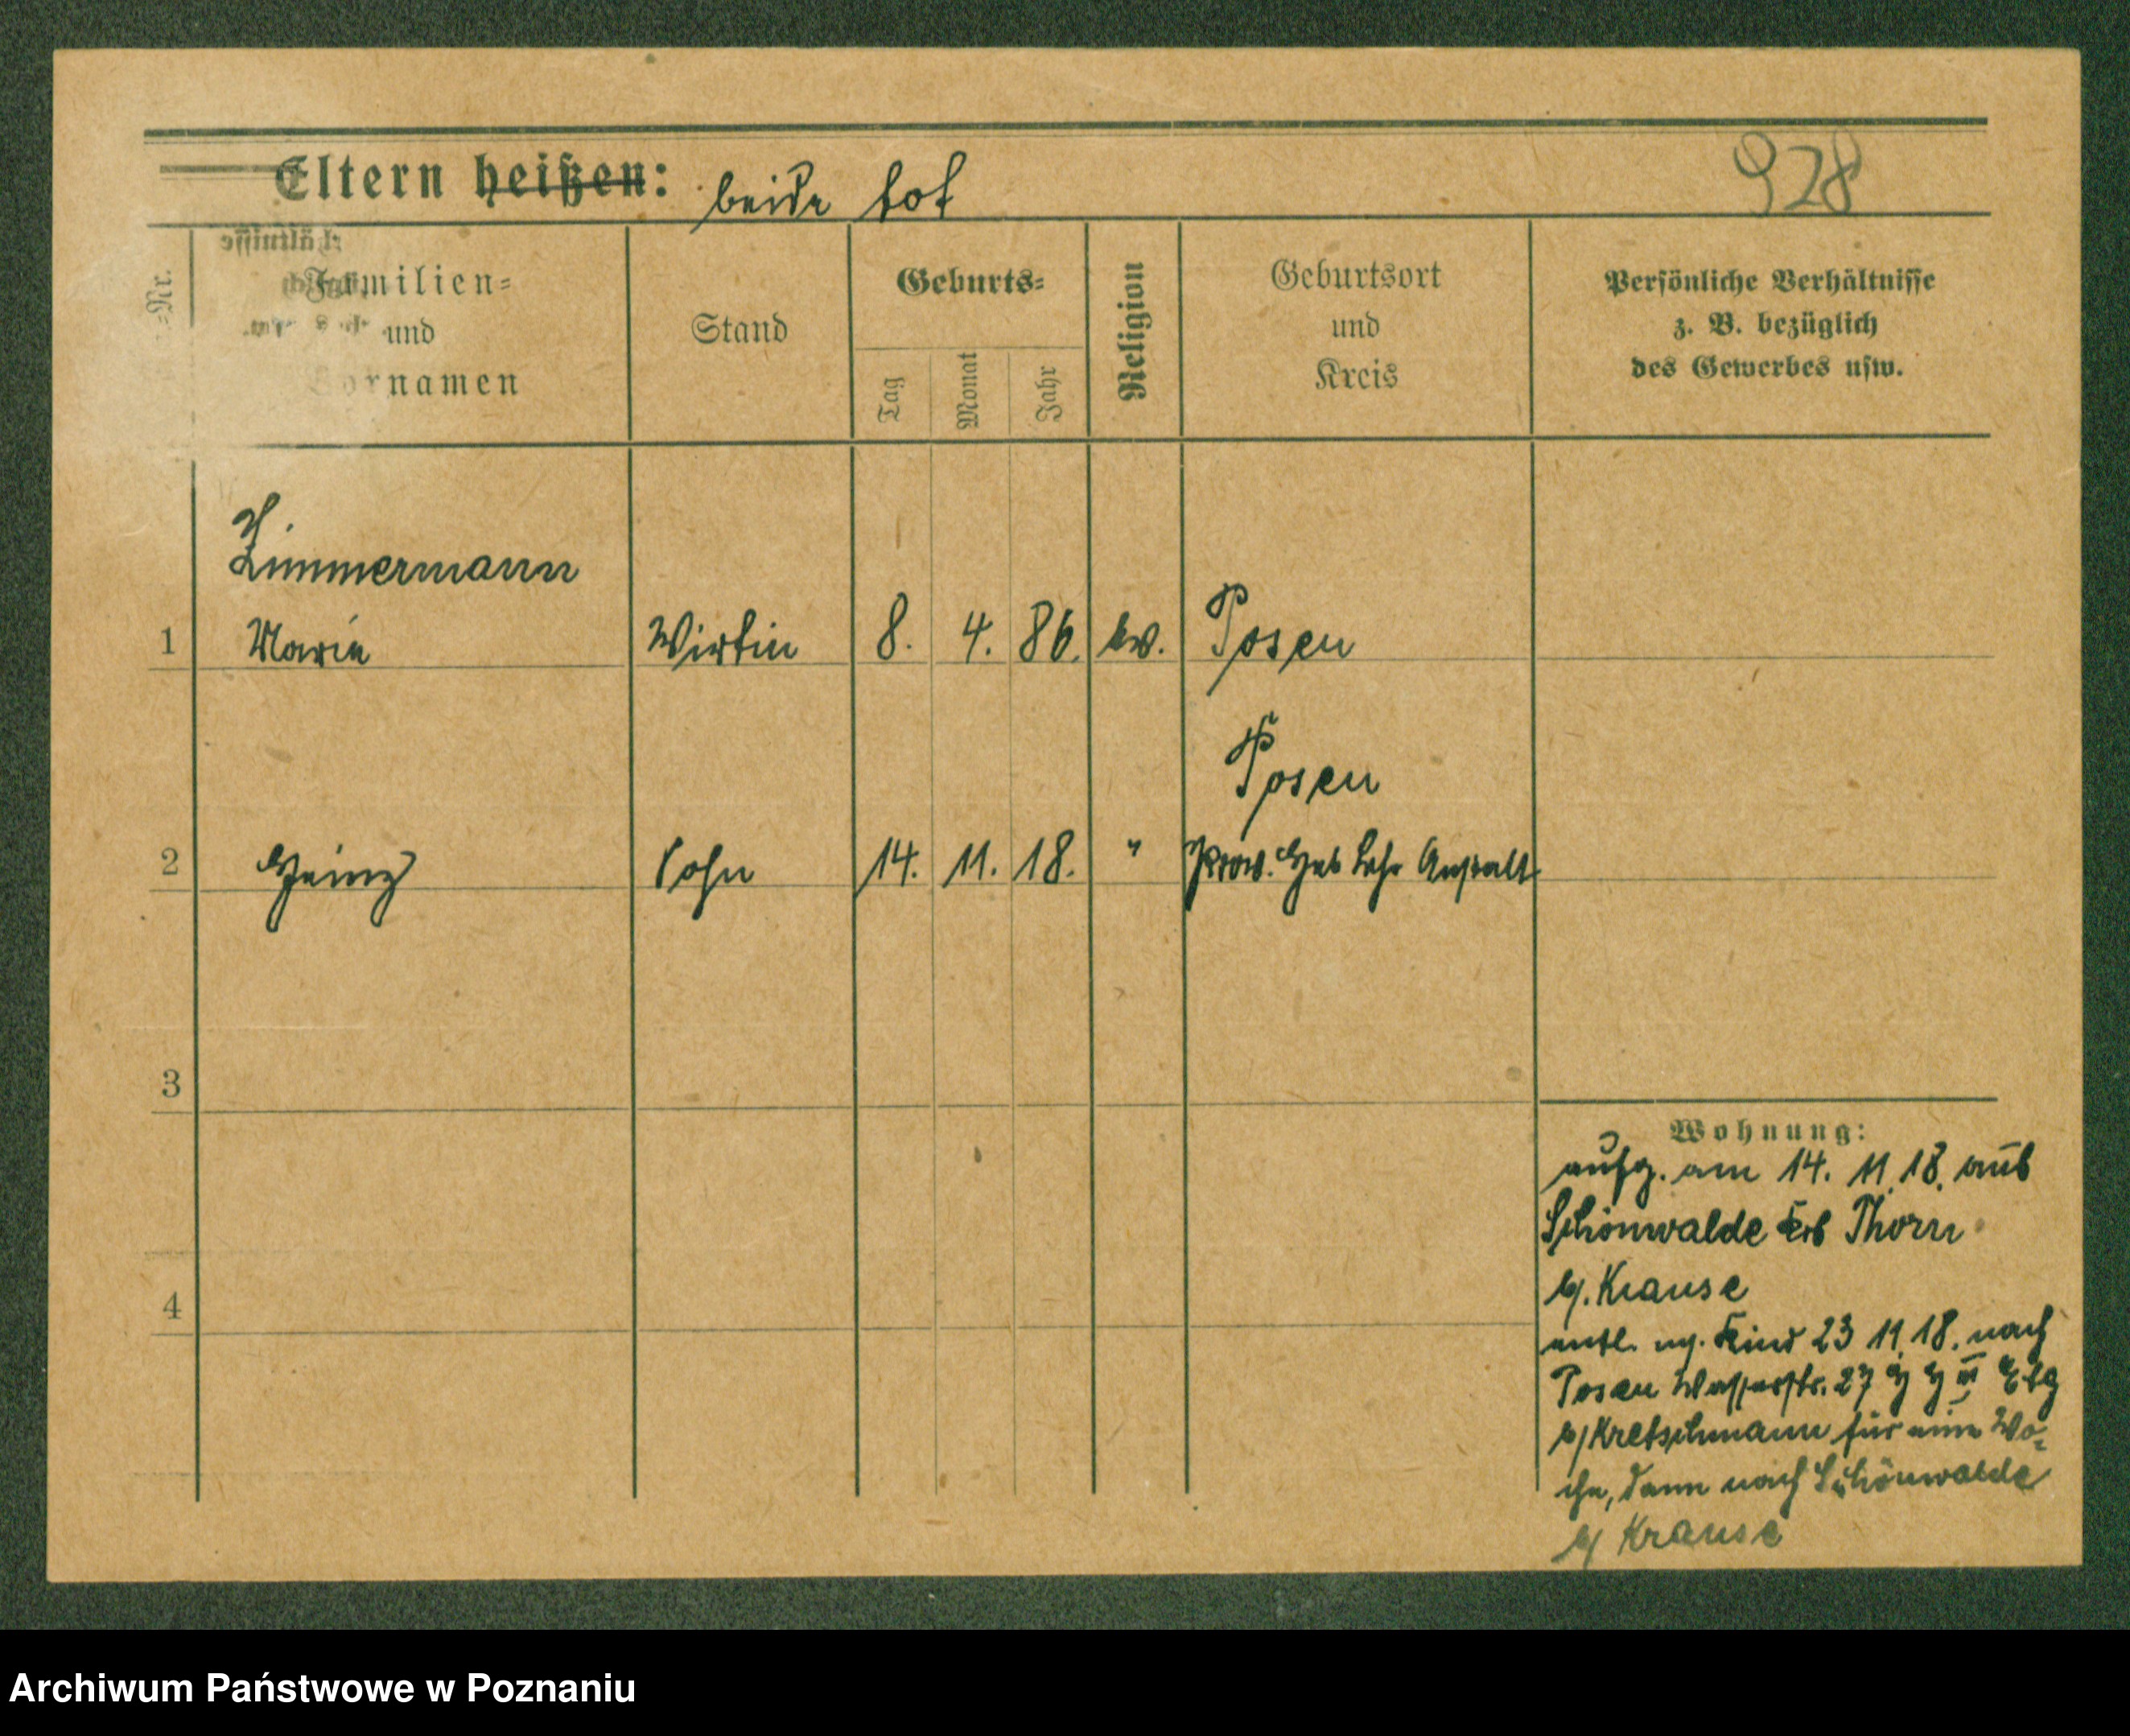 Eltern heißen: beide tot
928
=Nr.
Familien=
und
Vornamen
Stand
Geburts=
Tag
Monat
Jahr
Religion
Geburtsort
und
Kreis
Persönliche Verhältnisse
z. B. bezüglich
des Gewerbes usw.
Zimmermann
1 Marie Wirtin 8. 4. 86. ev. Posen
Posen
2 Heinz Sohn 14. 11. 18. " Prov. Heb Lehr Anstalt
3
4
Wohnung:
aufg. am 14. 11. 18. aus
Schönwalde Krs Thorn
b/. Krause
entl. m/. Kind 23 11. 18. nach
Posen Wasserstr. 27 III Etg
b/ Kretschmann für eine Wo-
che, dann nach Schönwalde
b/ Krause
Archiwum Państwowe w Poznaniu